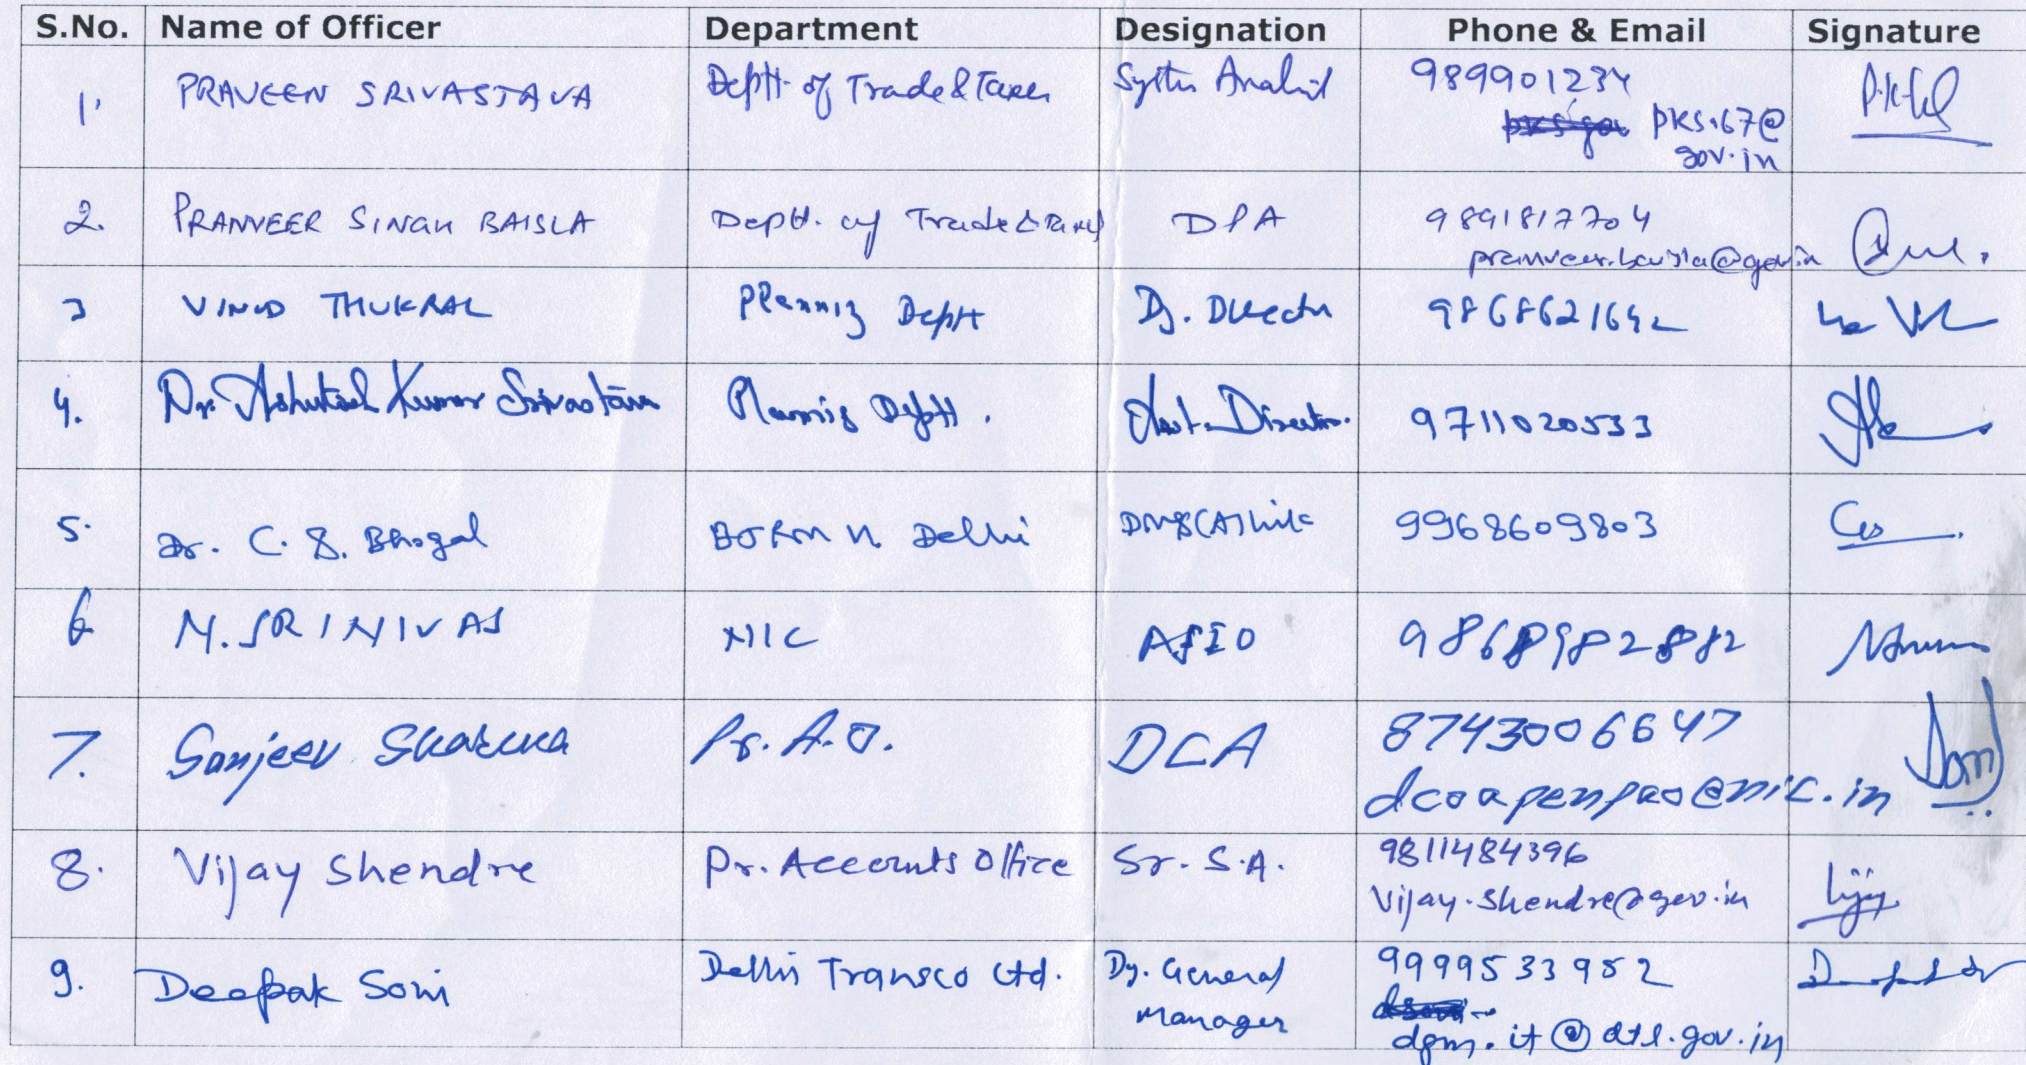 S.No. Name of Officer Department Designation Phone & Email Signature
1. PRAVEEN SRIVASTAVA Deptt. of Trade & Taxes System Analist 989901234
pks.167@
gov.in
2. PRANVEER SINGH BAISLA Deptt. of Trade & Taxes DPA 9891817704
pranveer.baisla@gov.in
3 VINOD THUKRAL Planning Deptt Dy. Director 9868621642
4. Dr. Ashutosh Kumar Srivastava Planning Deptt. Asst. Director 9711020533
5. Dr. C. S. Bhogal N. Delhi 9968609803
6 M. SRINIVAS NIC ASIO 9868982882
7. Sanjeev Sharma Pr. A.O. DCA 8743006647
dcoapenpao@nic.in
8. Vijay Shendre Pr. Accounts Office Sr. S.A. 9811484396
Vijay.Shendre@gov.in
9. Deepak Soni Delhi Transco Ltd. Dy. General
Manager 9999533952
dgm.it@dtl.gov.in